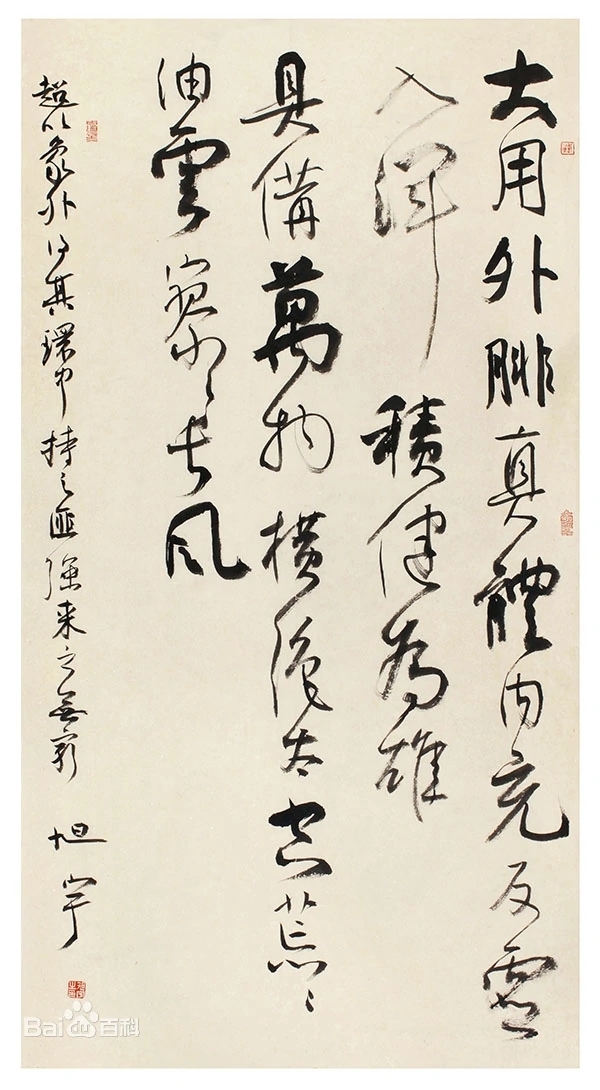 大用外腓真體内充反虛
入渾積健為雄
具備萬物横絕太空荒〻
油雲寥〻長風
超以象外得其環中持之匪強来之無窮 旭宇
Bai百科